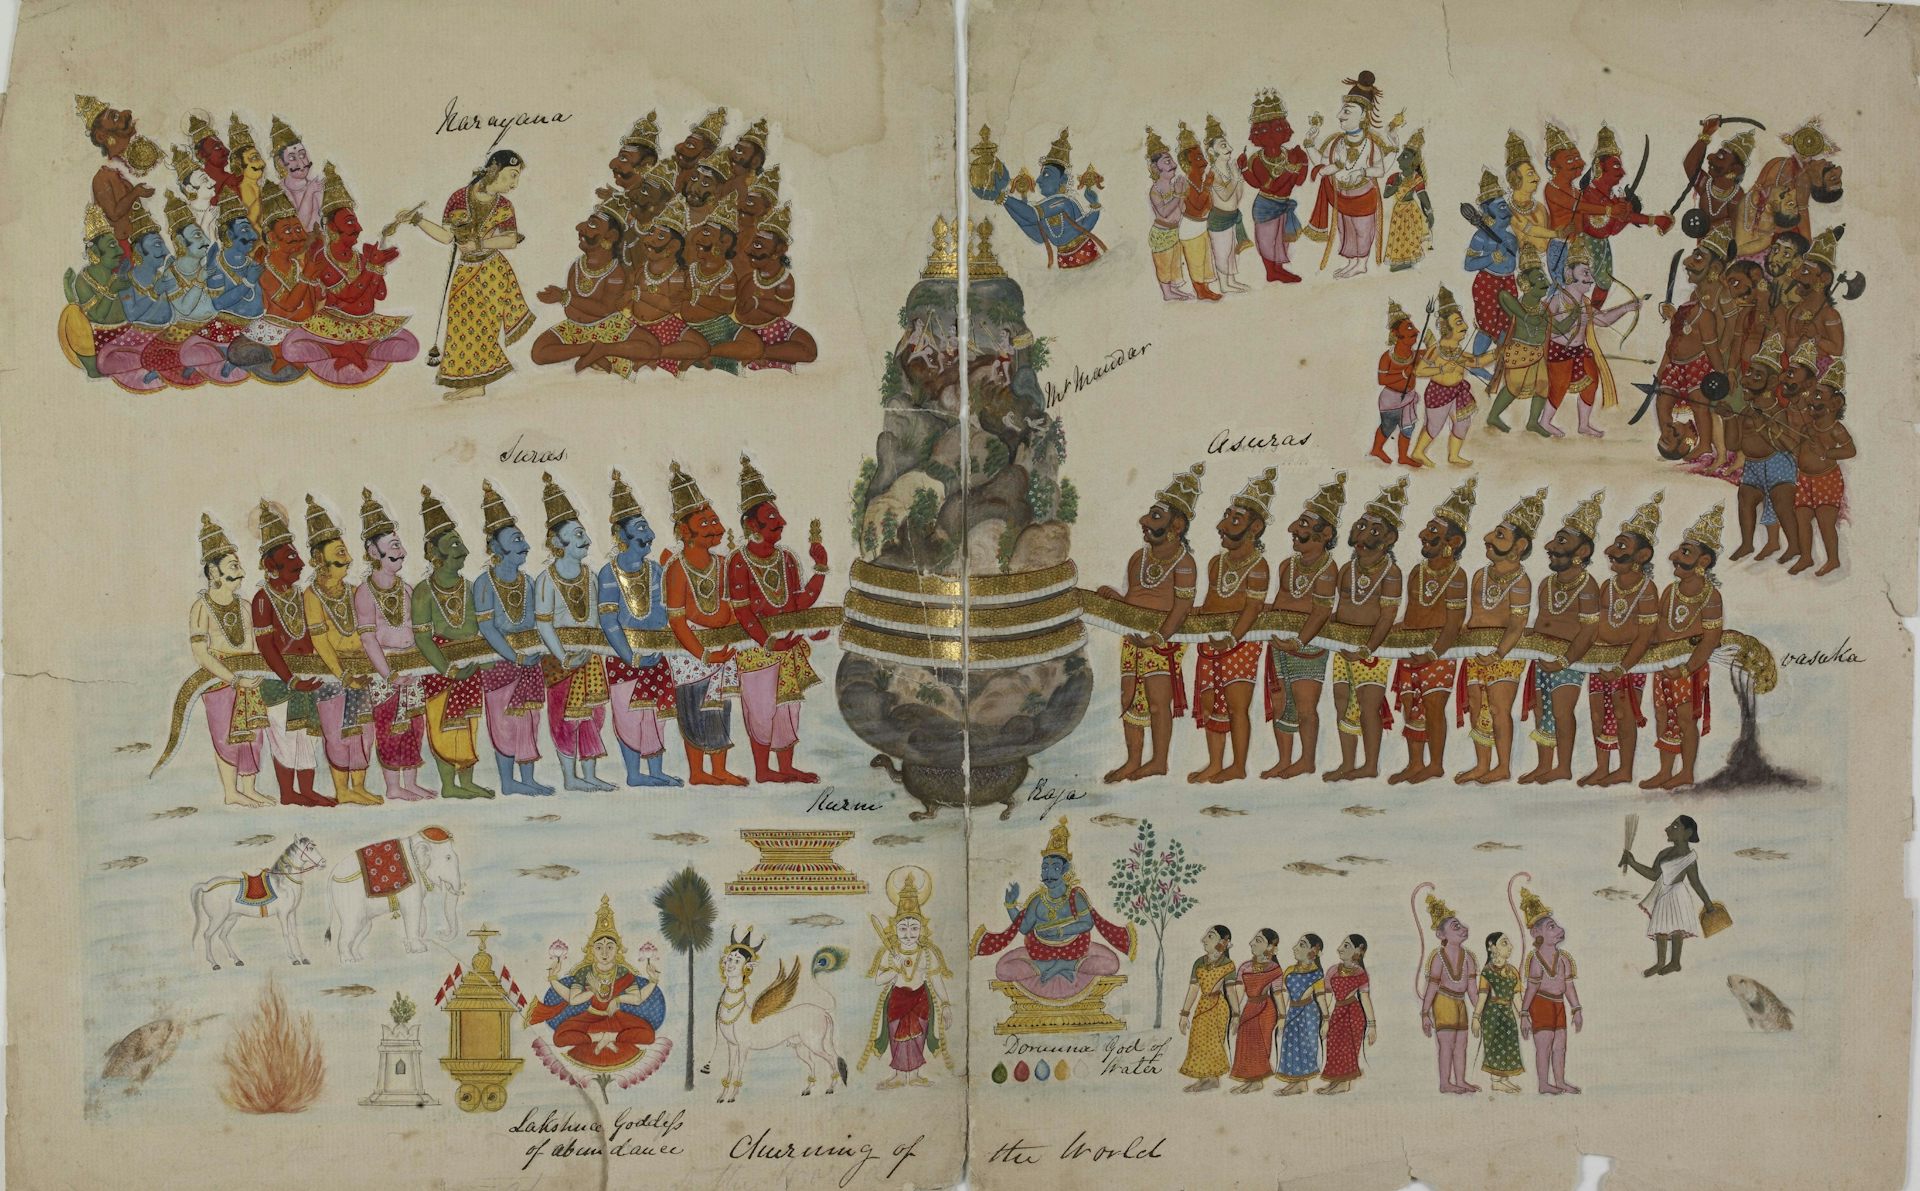 7
Narayana
Mt Mandar
Suras
Asuras
vasuka
Kurm Raja
Dorunna God of
Water
Lakshmee Goddess
of abundance
Churning of the World